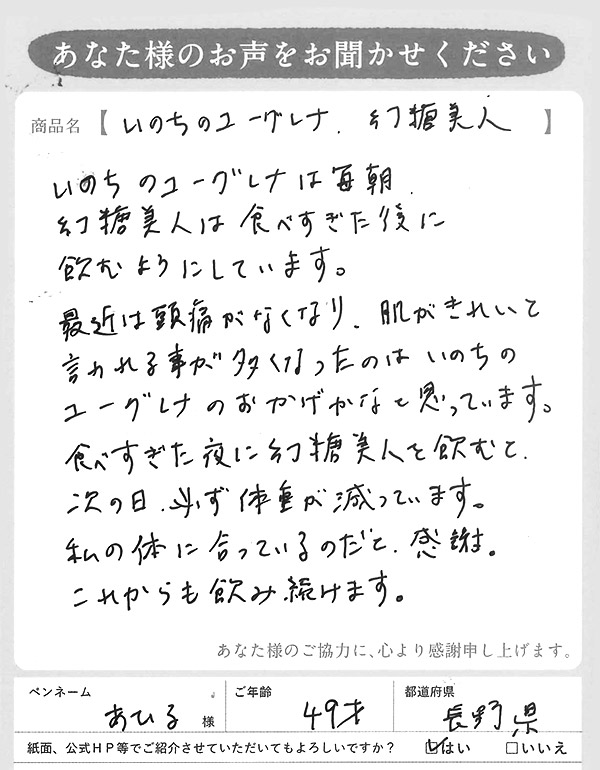 あなた様のお声をお聞かせください
商品名【いのちのユーグレナ、幻糖美人】
いのちのユーグレナは毎朝、
幻糖美人は食べすぎた後に
飲むようにしています。
最近は頭痛がなくなり、肌がきれいと
言われる事が多くなったのはいのちの
ユーグレナのおかげかなと思っています。
食べすぎた夜に幻糖美人を飲むと、
次の日、必ず体重が減っています。
私の体に合っているのだと、感謝。
これからも飲み続けます。
あなた様のご協力に、心より感謝申し上げます。
ペンネーム あひる様 ご年齢 49才 都道府県 長野県
紙面、公式HP等でご紹介させていただいてもよろしいですか? ☑はい □いいえ